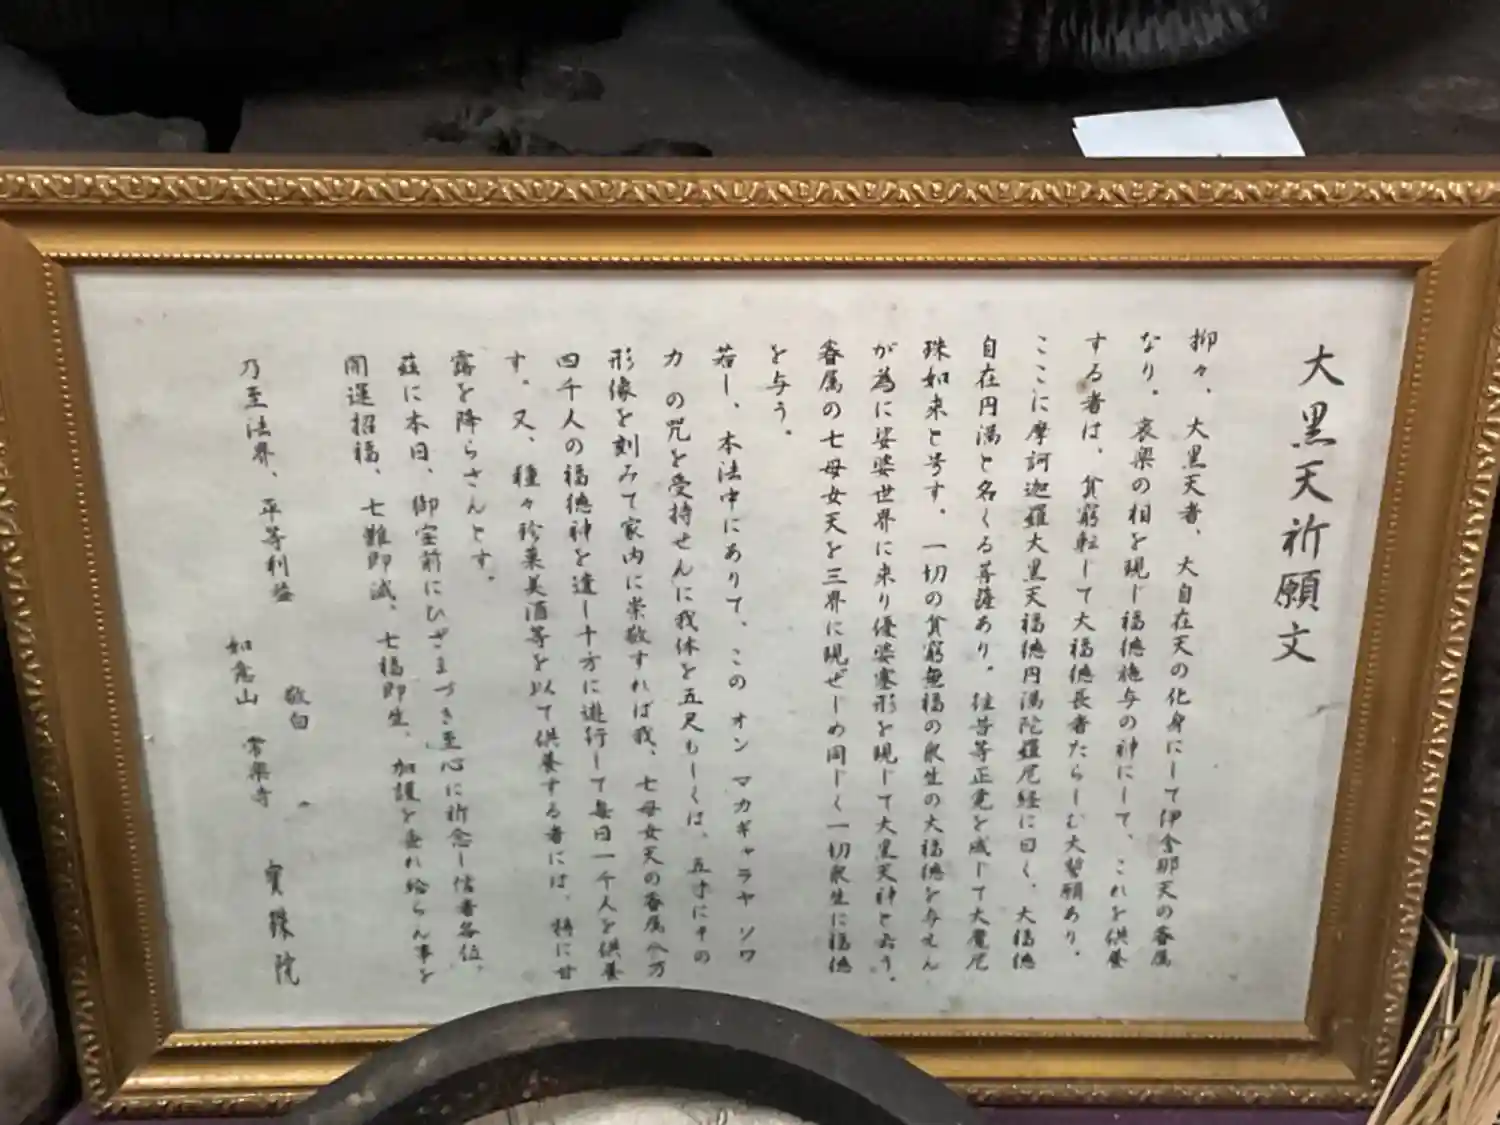 大黒天祈願文
抑々、大黒天者、大自在天の化身にして伊舎那天の眷属
なり。哀楽の相を現じ福徳施与の神にして、これを供養
する者は、貧窮転じて大福徳長者たらしむ大誓願あり。
ここに摩訶迦羅大黒天福徳円満陀羅尼経に曰く、大福徳
自在円満と名くる菩薩あり。往昔等正覚を成じて大魔尼
珠如来と号す。一切の貧窮無福の衆生の大福徳を与えん
が為に娑婆世界に来り優婆塞形を現じて大黒天神と云う。
眷属の七母女天を三界に現ぜしめ同じく一切衆生に福徳
を与う。
若し、本法中にありて、このオン マカギャラヤ ソワ
カ の咒を受持せんに我体を五尺もしくは、五寸にその
形像を刻みて家内に崇敬すれば我、七母女天の眷属八万
四千人の福徳神を遣し十方に遊行して毎日一千人を供養
す。又、種々珍菓美酒等を以て供養する者には、特に甘
露を降らさんとす。
茲に本日、御宝前にひざまづき至心に祈念し信者各位、
開運招福、七難即滅、七福即生、加護を垂れ給らん事を
乃至法界、平等利益
敬白
如意山 常楽寺
宝珠院